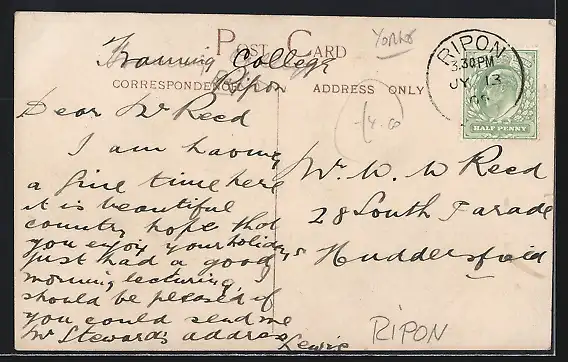 POST CARD
Yorks
Training College
Ripon
CORRESPONDENCE
ADDRESS ONLY
RIPON
3.30 PM
JY 13
HALF PENNY
Dear Mr Reed
I am having
a fine time here
it is beautiful
country hope that
you enjoy your holidays
just had a good
morning lecturing, I
should be pleased if
you could send me
Mr Steward's address
Lewis
Mr. W. W Reed
28 South Parade
Huddersfield
RIPON